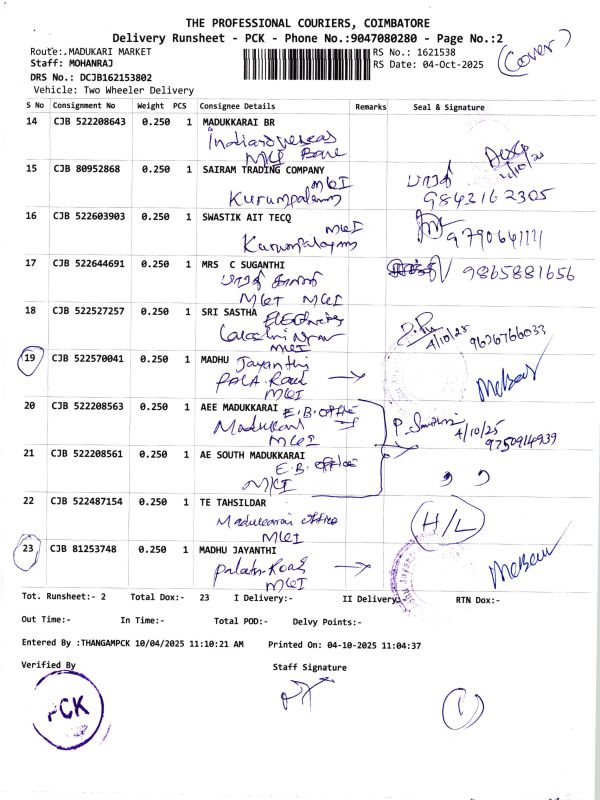 THE PROFESSIONAL COURIERS, COIMBATORE
Delivery Runsheet - PCK - Phone No.:9047080280 - Page No.:2
(Cover)
Route:.MADUKARI MARKET
RS No.: 1621538
Staff: MOHANRAJ
RS Date: 04-Oct-2025
DRS No.: DCJB162153802
Vehicle: Two Wheeler Delivery
S No Consignment No Weight PCS Consignee Details Remarks Seal & Signature
14 CJB 522208643 0.250 1 MADUKKARAI BR
Indian overseas
15 CJB 80952868 0.250 1 SAIRAM TRADING COMPANY
MKI
Kurumpalayam
9842162305
16 CJB 522603903 0.250 1 SWASTIK AIT TECQ
MKI
9790641111
17 CJB 522644691 0.250 1 MRS C SUGANTHI
9865881656
MKI
18 CJB 522527257 0.250 1 SRI SASTHA
4/10/25 9626766033
MKI
19 CJB 522570041 0.250 1 MADHU Jayanthi
MKI
20 CJB 522208563 0.250 1 AEE MADUKKARAI E.B. office
4/10/25
9750914939
MKI
21 CJB 522208561 0.250 1 AE SOUTH MADUKKARAI
E.B. office
MKI
22 CJB 522487154 0.250 1 TE TAHSILDAR
Madukkarai office
H/L
MKI
23 CJB 81253748 0.250 1 MADHU JAYANTHI
Road
MKI
Tot. Runsheet:- 2 Total Dox:- 23 I Delivery:- II Delivery:- RTN Dox:-
Out Time:- In Time:- Total POD:- Delvy Points:-
Entered By :THANGAMPCK 10/04/2025 11:10:21 AM Printed On: 04-10-2025 11:04:37
Verified By Staff Signature
PCK
1